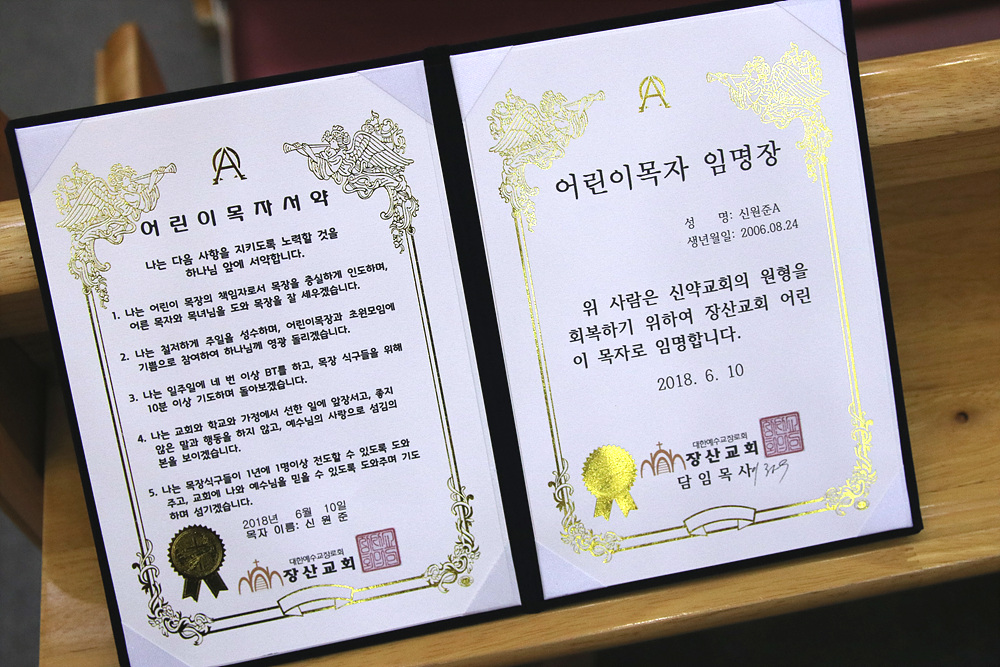 어린이목자서약
나는 다음 사항을 지키도록 노력할 것을
하나님 앞에 서약합니다.
1. 나는 어린이 목장의 책임자로서 목장을 충실하게 인도하며,
어른 목자와 목녀님을 도와 목장을 잘 세우겠습니다.
2. 나는 철저하게 주일을 성수하며, 어린이목장과 초원모임에
기쁨으로 참여하여 하나님께 영광 돌리겠습니다.
3. 나는 일주일에 네 번 이상 BT를 하고, 목장 식구들을 위해
10분 이상 기도하며 돌아보겠습니다.
4. 나는 교회와 학교와 가정에서 선한 일에 앞장서고, 좋지
않은 말과 행동을 하지 않고, 예수님의 사랑으로 섬김의
본을 보이겠습니다.
5. 나는 목장식구들이 1년에 1명이상 전도할 수 있도록 도와
주고, 교회에 나와 예수님을 믿을 수 있도록 도와주며 기도
하며 섬기겠습니다.
2018년 6월 10일
목자 이름: 신 원 준
대한예수교장로회
장산교회
어린이목자 임명장
성 명: 신원준A
생년월일: 2006.08.24
위 사람은 신약교회의 원형을
회복하기 위하여 장산교회 어린
이 목자로 임명합니다.
2018. 6. 10
대한예수교장로회
장산교회
담임목사